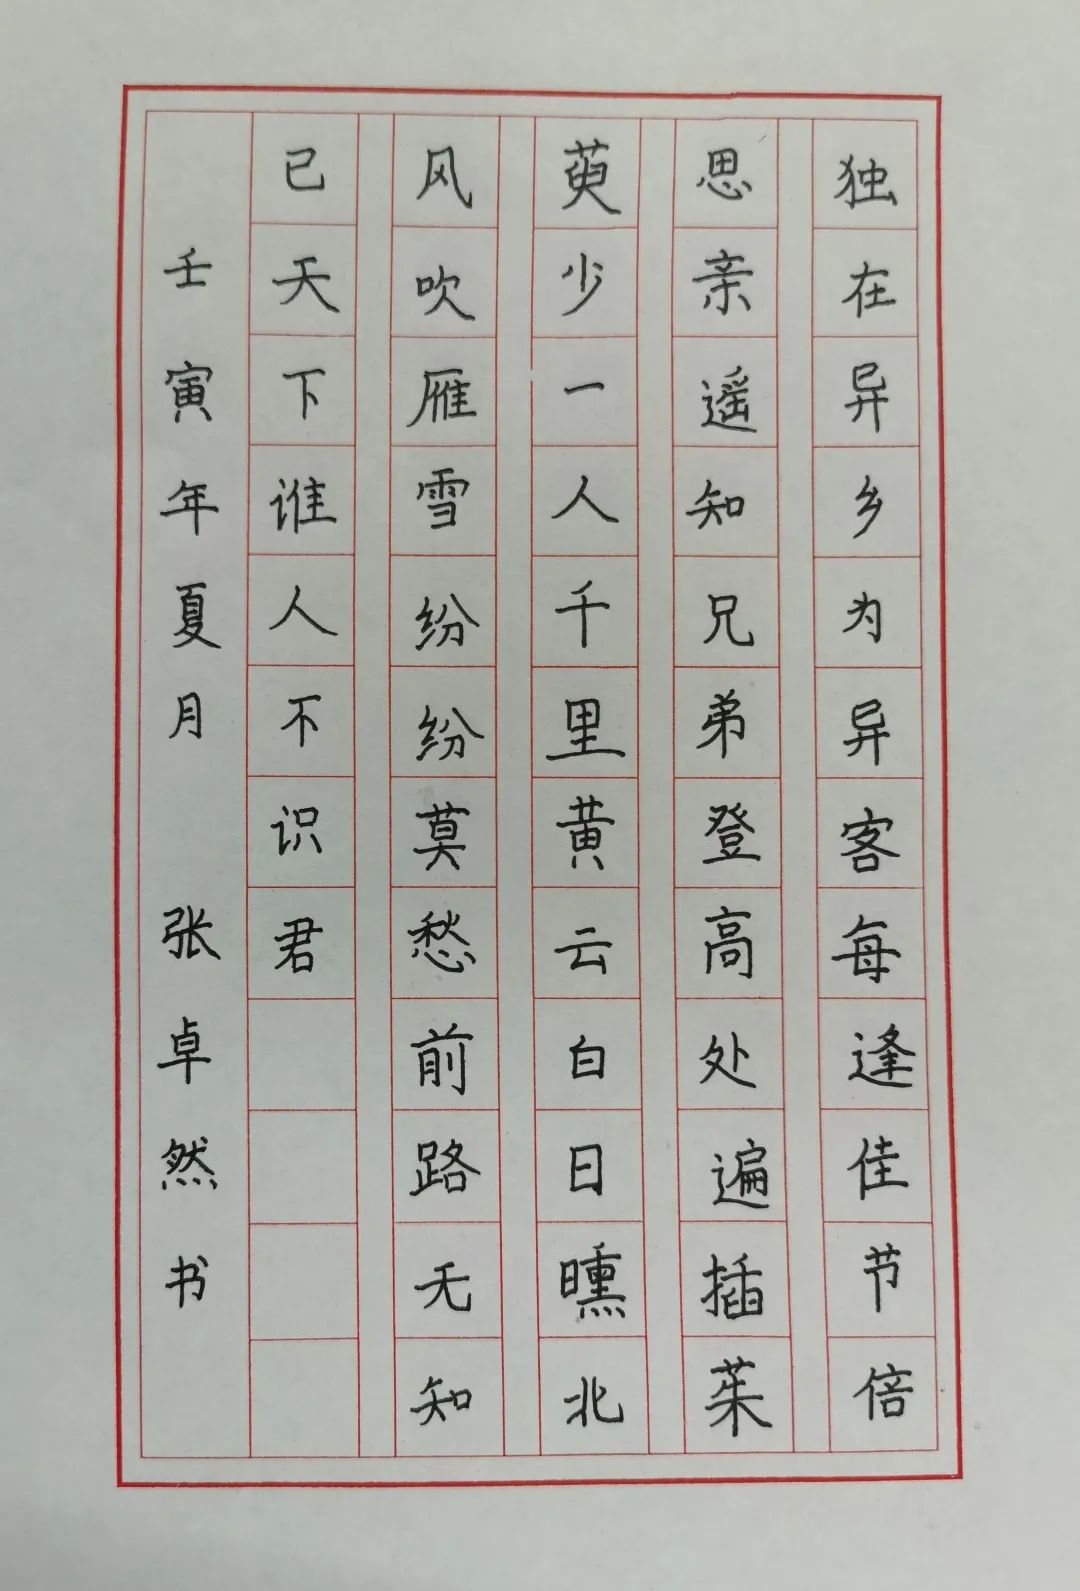 独在异乡为异客每逢佳节倍
思亲遥知兄弟登高处遍插茱
萸少一人千里黄云白日曛北
风吹雁雪纷纷莫愁前路无知
已天下谁人不识君
壬寅年夏月 张卓然书